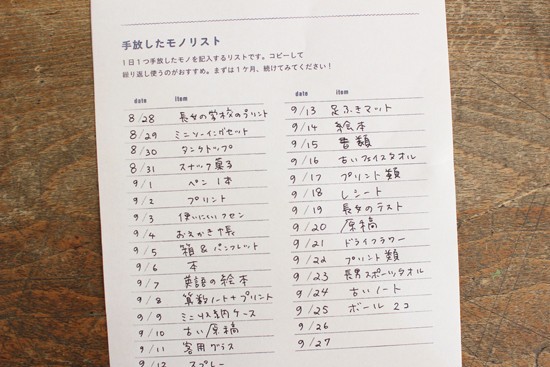 手放したモノリスト
1日1つ手放したモノを記入するリストです。コピーして
繰り返し使うのがおすすめ。まずは1ケ月、続けてみてください!
date item
8/28 長女の学校のプリント
8/29 ミニソーイングセット
8/30 タンクトップ
8/31 スナック菓子
9/1 ペン 1本
9/2 プリント
9/3 使いにくいフセン
9/4 おえかき帳
9/5 箱&パンフレット
9/6 本
9/7 英語の絵本
9/8 算数ノート+プリント
9/9 ミニ収納ケース
9/10 古い原稿
9/11 客用グラス
9/12 スプレー
date item
9/13 足ふきマット
9/14 絵本
9/15 書類
9/16 古いフェイスタオル
9/17 プリント類
9/18 レシート
9/19 長女のテスト
9/20 原稿
9/21 ドライフラワー
9/22 プリント類
9/23 長男スポーツタオル
9/24 古いノート
9/25 ボール 2コ
9/26
9/27